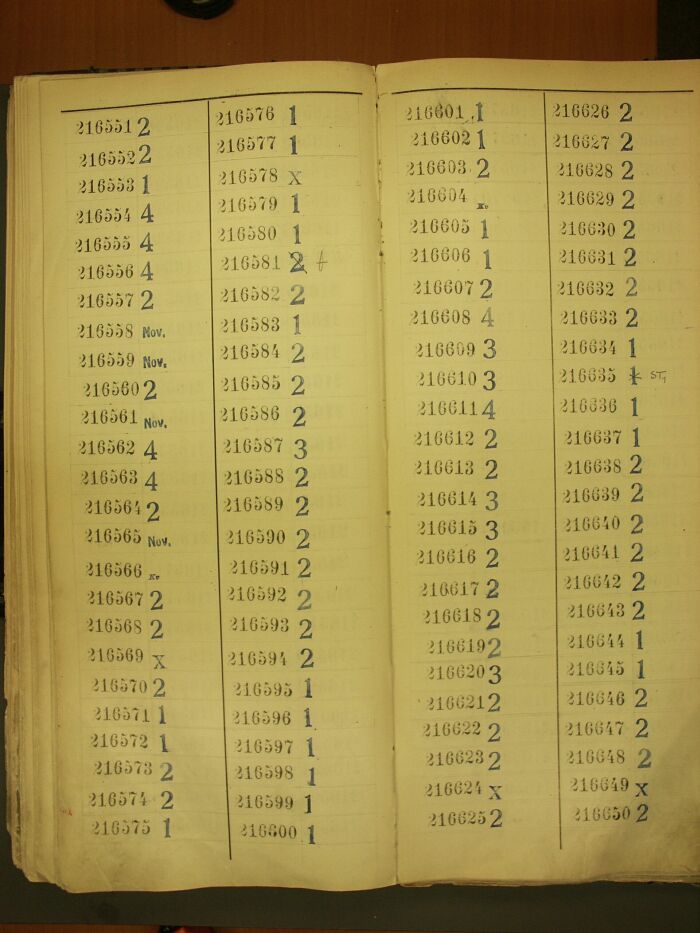 216551 2
216552 2
216553 1
216554 4
216555 4
216556 4
216557 2
216558 Nov.
216559 Nov.
216560 2
216561 Nov.
216562 4
216563 4
216564 2
216565 Nov.
216566
216567 2
216568 2
216569 X
216570 2
216571 1
216572 1
216573 2
216574 2
216575 1
216576 1
216577 1
216578 X
216579 1
216580 1
216581 2
216582 2
216583 1
216584 2
216585 2
216586 2
216587 3
216588 2
216589 2
216590 2
216591 2
216592 2
216593 2
216594 2
216595 1
216596 1
216597 1
216598 1
216599 1
216600 1
216601 1
216602 1
216603 2
216604
216605 1
216606 1
216607 2
216608 4
216609 3
216610 3
216611 4
216612 2
216613 2
216614 3
216615 3
216616 2
216617 2
216618 2
216619 2
216620 3
216621 2
216622 2
216623 2
216624 X
216625 2
216626 2
216627 2
216628 2
216629 2
216630 2
216631 2
216632 2
216633 2
216634 1
216635 1
216636 1
216637 1
216638 2
216639 2
216640 2
216641 2
216642 2
216643 2
216644 1
216645 1
216646 2
216647 2
216648 2
216649 X
216650 2